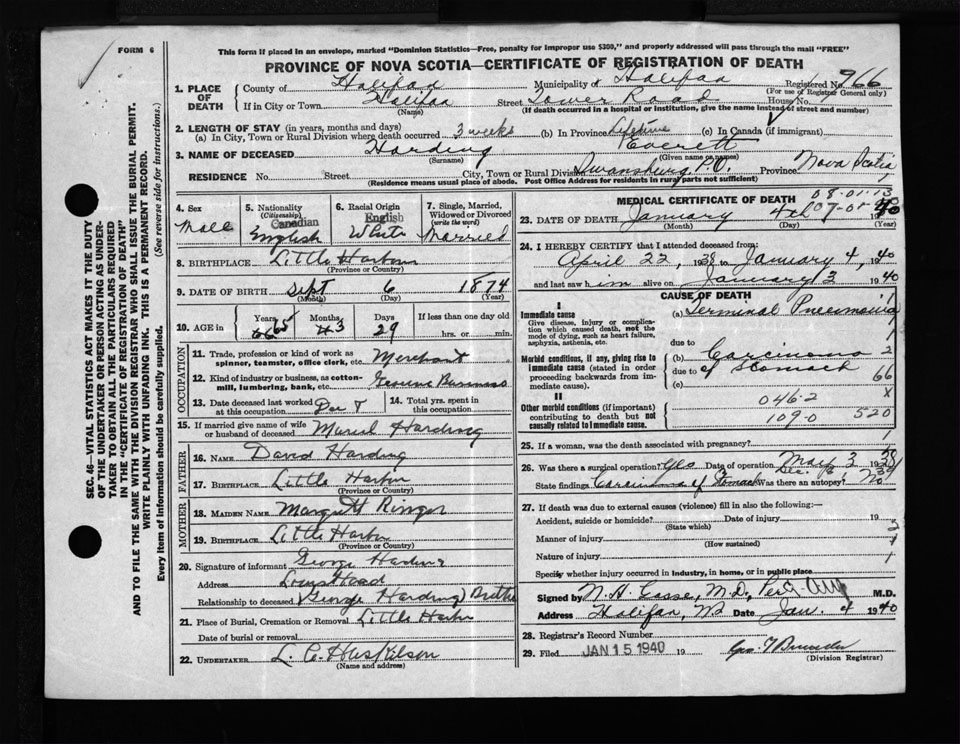 FORM 6
This form if placed in an envelope, marked "Dominion Statistics—Free, penalty for improper use $300," and properly addressed will pass through the mail "FREE"
PROVINCE OF NOVA SCOTIA—CERTIFICATE OF REGISTRATION OF DEATH
SEC. 46—VITAL STATISTICS ACT MAKES IT THE DUTY
OF THE UNDERTAKER OR PERSON ACTING AS UNDER-
TAKER TO OBTAIN ALL THE PARTICULARS REQUIRED
IN THE "CERTIFICATE OF REGISTRATION OF DEATH"
AND TO FILE THE SAME WITH THE DIVISION REGISTRAR WHO SHALL ISSUE THE BURIAL PERMIT.
WRITE PLAINLY WITH UNFADING INK. THIS IS A PERMANENT RECORD.
Every item of Information should be carefully supplied. (See reverse side for instructions.)
1. PLACE OF DEATH
County of Halifax Municipality of Halifax Registered No. 966
(For use of Registrar General only)
If in City or Town Halifax (Name) Street Tower Road House No.
(If death occurred in a hospital or institution, give the name instead of street and number)
2. LENGTH OF STAY (in years, months and days)
(a) In City, Town or Rural Division where death occurred 3 weeks (b) In Province Lifetime (c) In Canada (if immigrant)
3. NAME OF DECEASED Harding Everett
(Surname) (Given name or names)
RESIDENCE No. Street City, Town or Rural Division P.O. Province Nova Scotia
(Residence means usual place of abode. Post Office Address for residents in rural parts not sufficient)
4. Sex Male
5. Nationality (Citizenship) Canadian English
6. Racial Origin English White
7. Single, Married, Widowed or Divorced (write the word) Married
8. BIRTHPLACE Little Harbour
(Province or Country)
9. DATE OF BIRTH Sept 6 1874
(Month) (Day) (Year)
10. AGE in Years 66 65 Months 4 3 Days 29 If less than one day old hrs. or min.
OCCUPATION
11. Trade, profession or kind of work as spinner, teamster, office clerk, etc. Merchant
12. Kind of industry or business, as cotton-mill, lumbering, bank, etc. General Business
13. Date deceased last worked at this occupation
14. Total yrs. spent in this occupation
15. If married give name of wife or husband of deceased Muriel Harding
FATHER
16. NAME David Harding
17. BIRTHPLACE Little Harbor
(Province or Country)
MOTHER
18. MAIDEN NAME Margrett Ringer
19. BIRTHPLACE Little Harbor
(Province or Country)
20. Signature of informant George Harding
Address Louis Head
Relationship to deceased (George Harding) Brother
21. Place of Burial, Cremation or Removal Little Harbor
Date of burial or removal
22. UNDERTAKER
(Name and address)
MEDICAL CERTIFICATE OF DEATH
08-01-13
23. DATE OF DEATH January 4th 07-01 1940
(Month) (Day) (Year)
24. I HEREBY CERTIFY that I attended deceased from:
April 22, 1938 to January 4, 1940
and last saw him alive on January 3 1940
CAUSE OF DEATH
I
Immediate cause
Give disease, injury or complication which caused death, not the mode of dying, such as heart failure, asphyxia, asthenia, etc.
(a) Terminal Pneumonia
due to
Morbid conditions, if any, giving rise to immediate cause (stated in order proceeding backwards from immediate cause).
(b) Carcinoma 2
due to of Stomach 66
(c)
II
Other morbid conditions (if important) contributing to death but not causally related to Immediate cause.
046-2 X
109-0 520
25. If a woman, was the death associated with pregnancy?
26. Was there a surgical operation? Yes Date of operation
State findings Carcinoma of Stomach Was there an autopsy? No
27. If death was due to external causes (violence) fill in also the following:—
Accident, suicide or homicide? Date of injury 19
(State which)
Manner of injury
(How sustained)
Nature of injury
Specify whether injury occurred in industry, in home, or in public place
Signed by M.D.
Address Halifax, NS Date Jan. 4 1940
28. Registrar's Record Number
29. Filed JAN 15 1940 19
(Division Registrar)